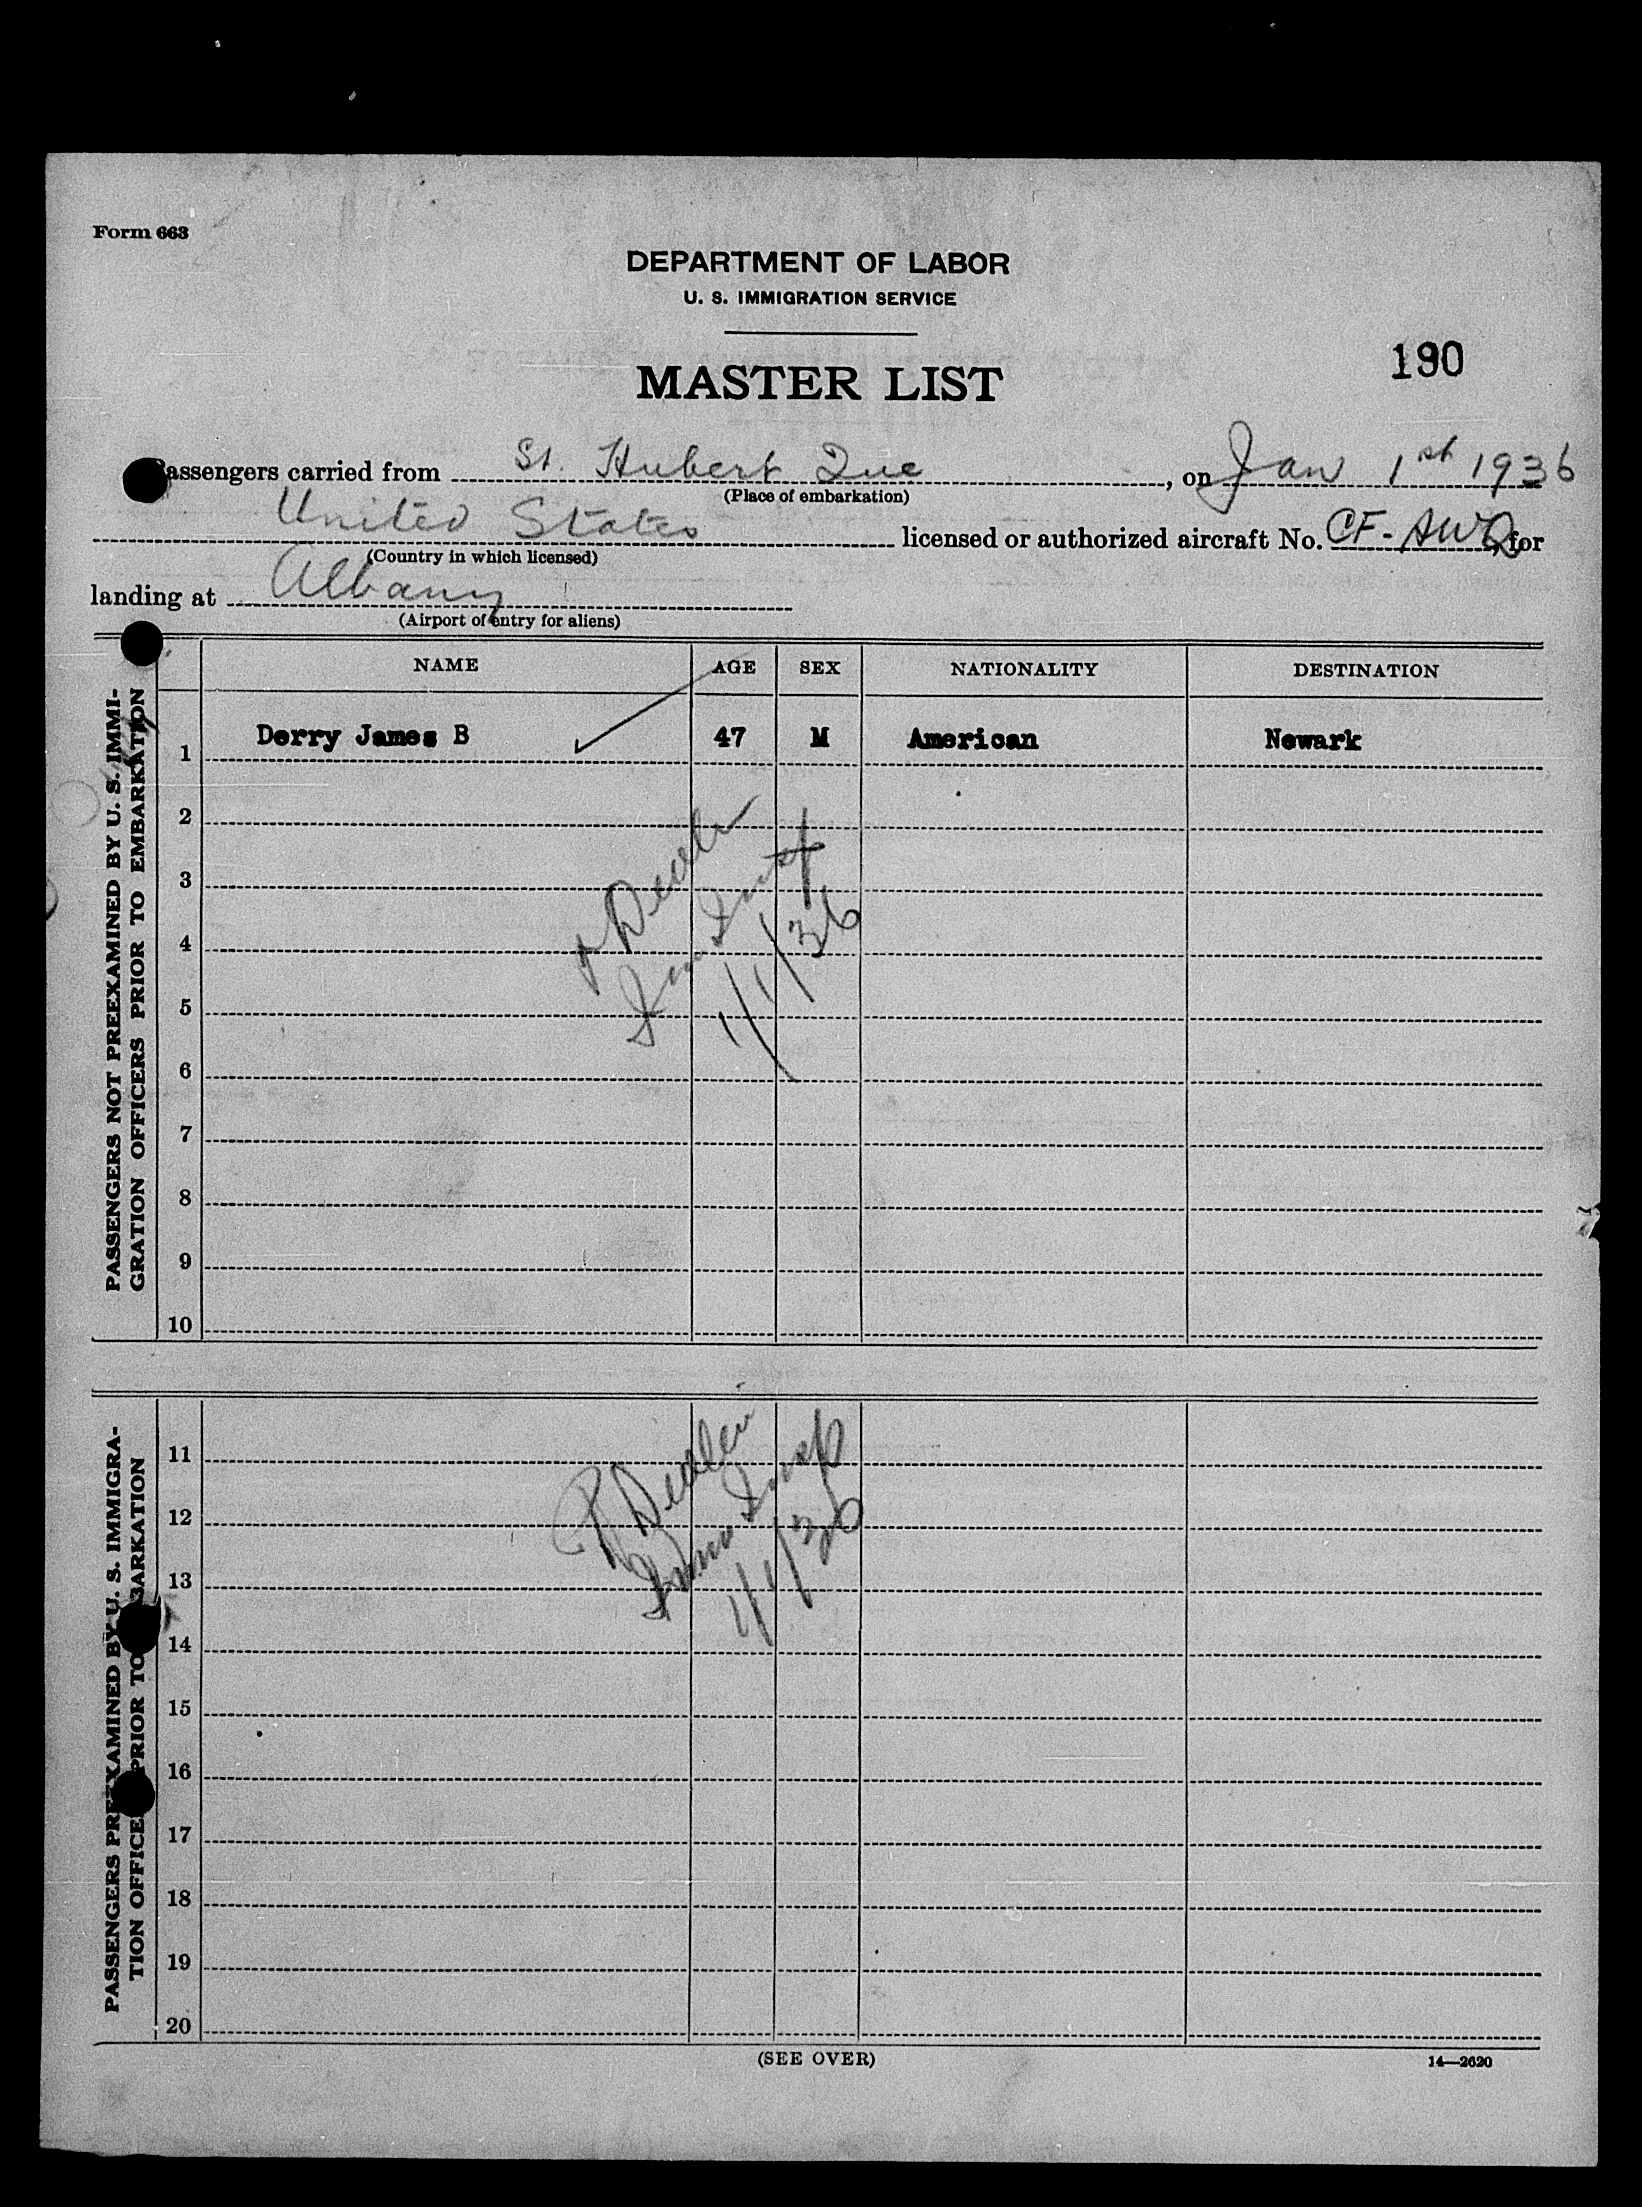 Form 663
DEPARTMENT OF LABOR
U. S. IMMIGRATION SERVICE
MASTER LIST
190
Passengers carried from St. Hubert Que, on Jan 1st 1936
(Place of embarkation)
United States licensed or authorized aircraft No. CF-AWQ, for
(Country in which licensed)
landing at Albany
(Airport of entry for aliens)
NAME AGE SEX NATIONALITY DESTINATION
PASSENGERS NOT PREEXAMINED BY U. S. IMMI-
GRATION OFFICERS PRIOR TO EMBARKATION
1 Derry James B 47 M American Newark
2
3
4
5
6
7
8
9
10
Imm Insp
1/1/36
PASSENGERS PREEXAMINED BY U. S. IMMIGRA-
TION OFFICERS PRIOR TO EMBARKATION
11
12
13
14
15
16
17
18
19
20
Imm Insp
1/1/36
(SEE OVER)
14—2620